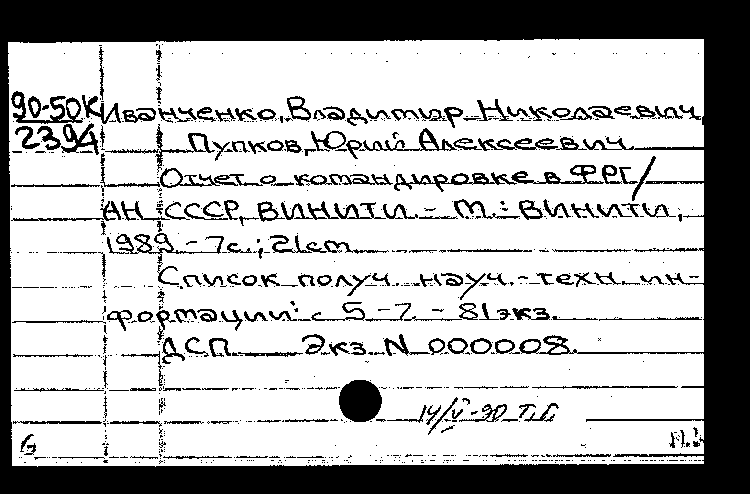 90-50К Иванченко, Владимир Николаевич,
239/4 Пупков, Юрий Алексеевич.
Отчет о командировке в ФРГ /
АН СССР, ВИНИТИ. - М.: ВИНИТИ,
1989. - 7с.; 21см.
Список получ. науч.-техн. ин-
формации: с 5-7. - 81экз.
ДСП. Экз. N 000008.
14/V-90 Т.Г.